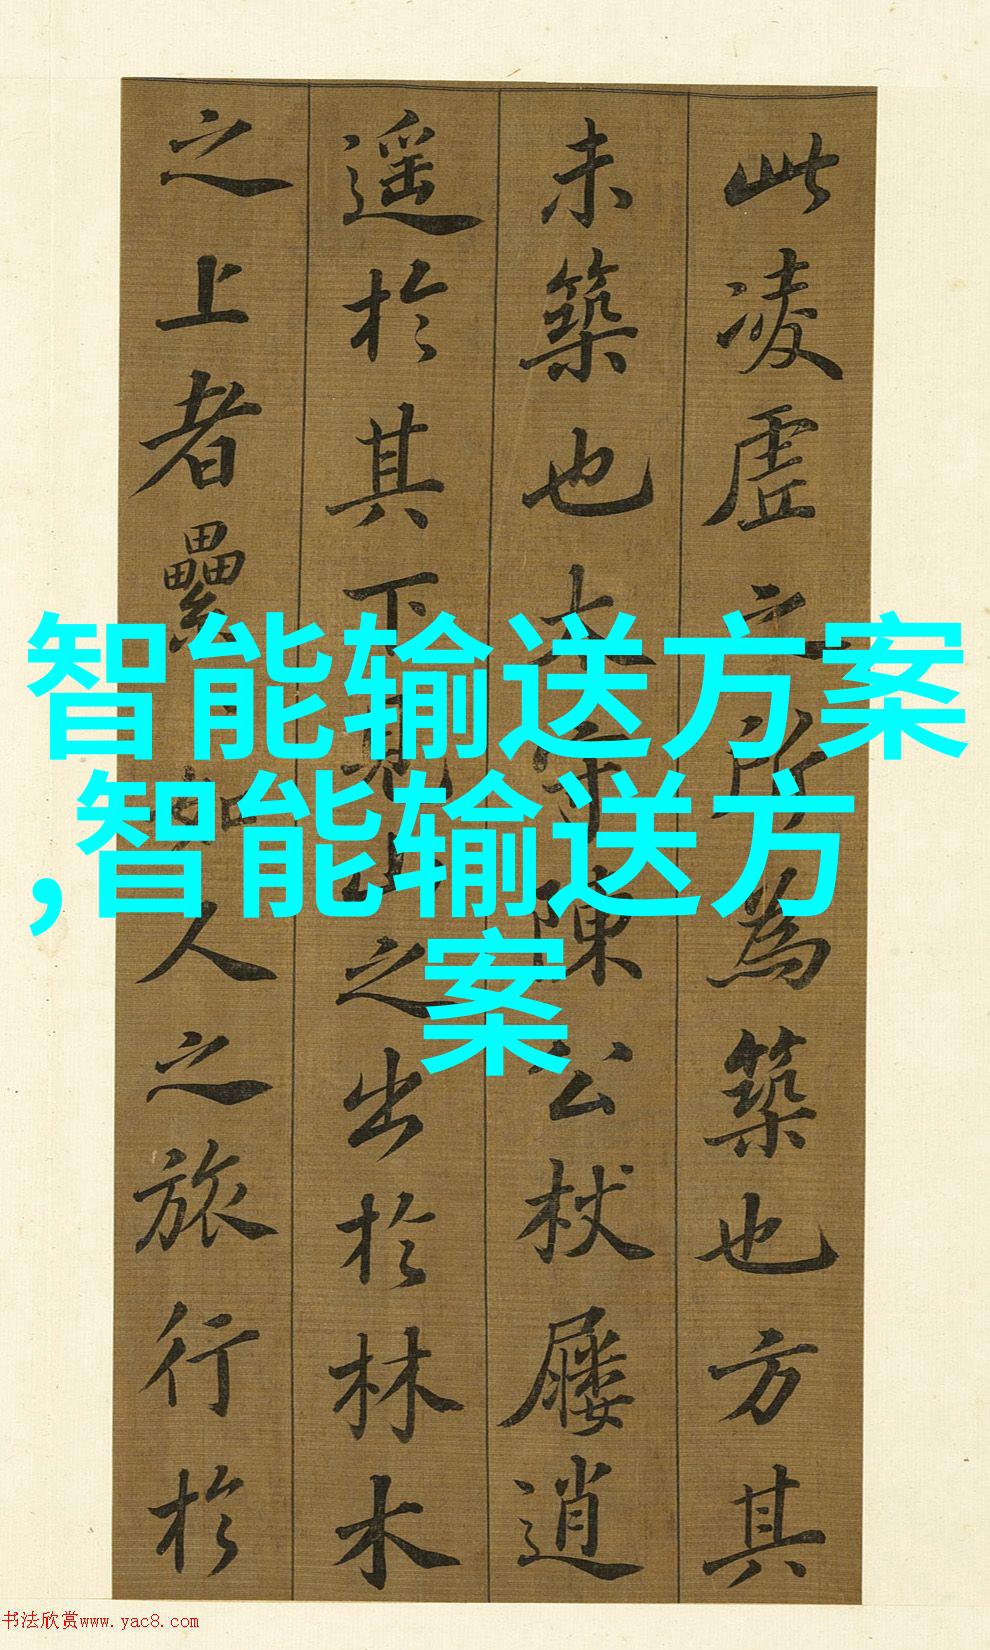 此凌虚之所為築也方其
未築也太守陳公杖屨逍
遥於其下見山之出於林木
之上者纍纍如人之旅行於
智能输送方案
,智能输送方
案
书法欣赏www.yac8.com